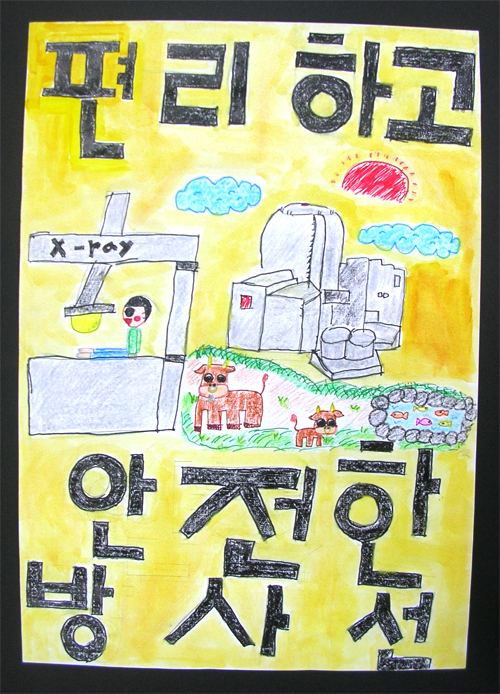 편리하고
X-ray
안전한
방사선